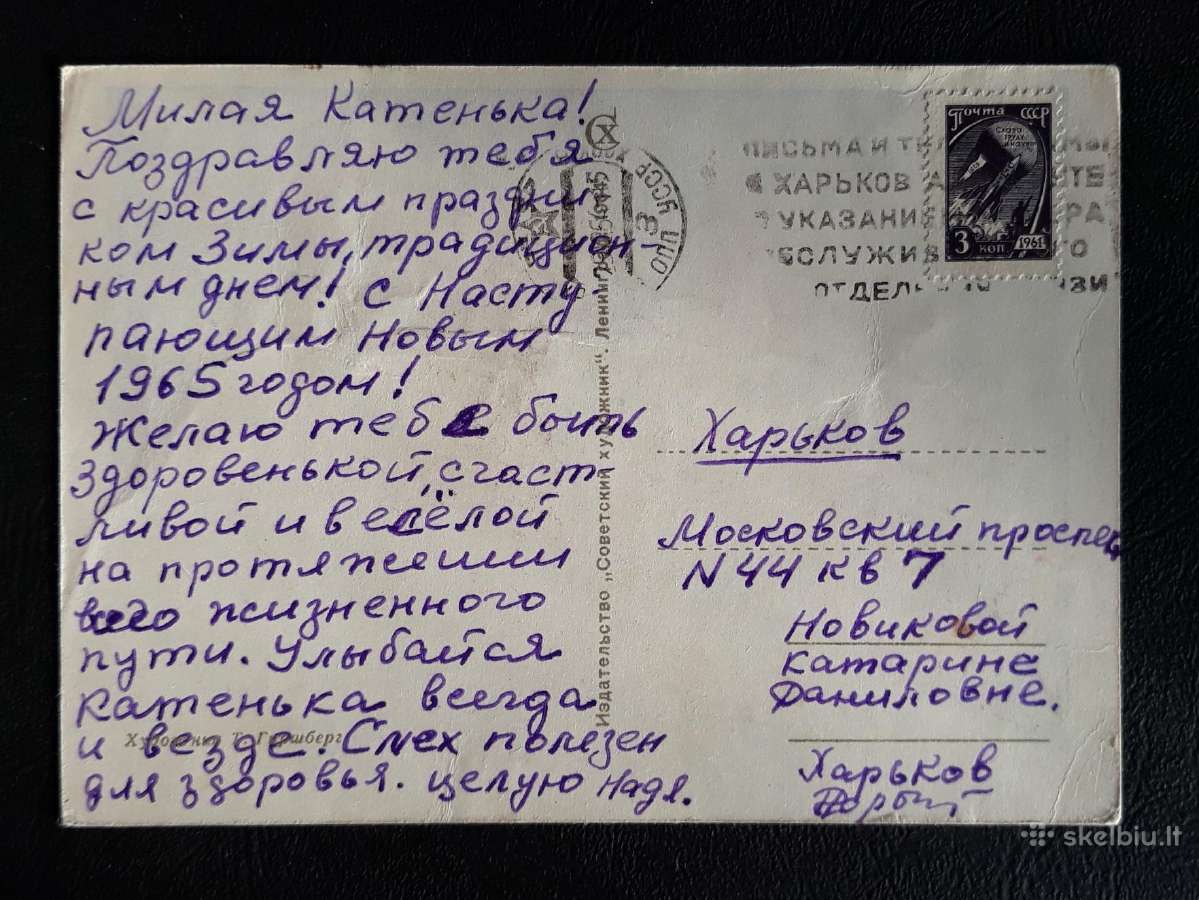 Милая Катенька!
Поздравляю тебя
с красивым праздни
ком Зимы, традицион-
ным днем! с Насту-
пающим Новым
1965 годом!
Желаю тебе быть
здоровенькой, счаст
ливой и весёлой
на протяжении
всего жизненного
пути. Улыбайся
Катенька всегда
и везде. Смех полезен
для здоровья. целую Надя.
Художник Т. Гершберг
Издательство „Советский художник“. Ленин
Почта СССР
СЛАВА
ТРУДУ
И НАУКЕ
3 КОП 1961
ПИСЬМА И
ХАРЬКОВ
УКАЗАНИЕ
ОБСЛУЖИВ
ОТДЕЛ
УССР
Харьков
Московский проспек
N 44 кв 7
Новиковой
Катарине
Даниловне.
Харьков
skelbiu.lt